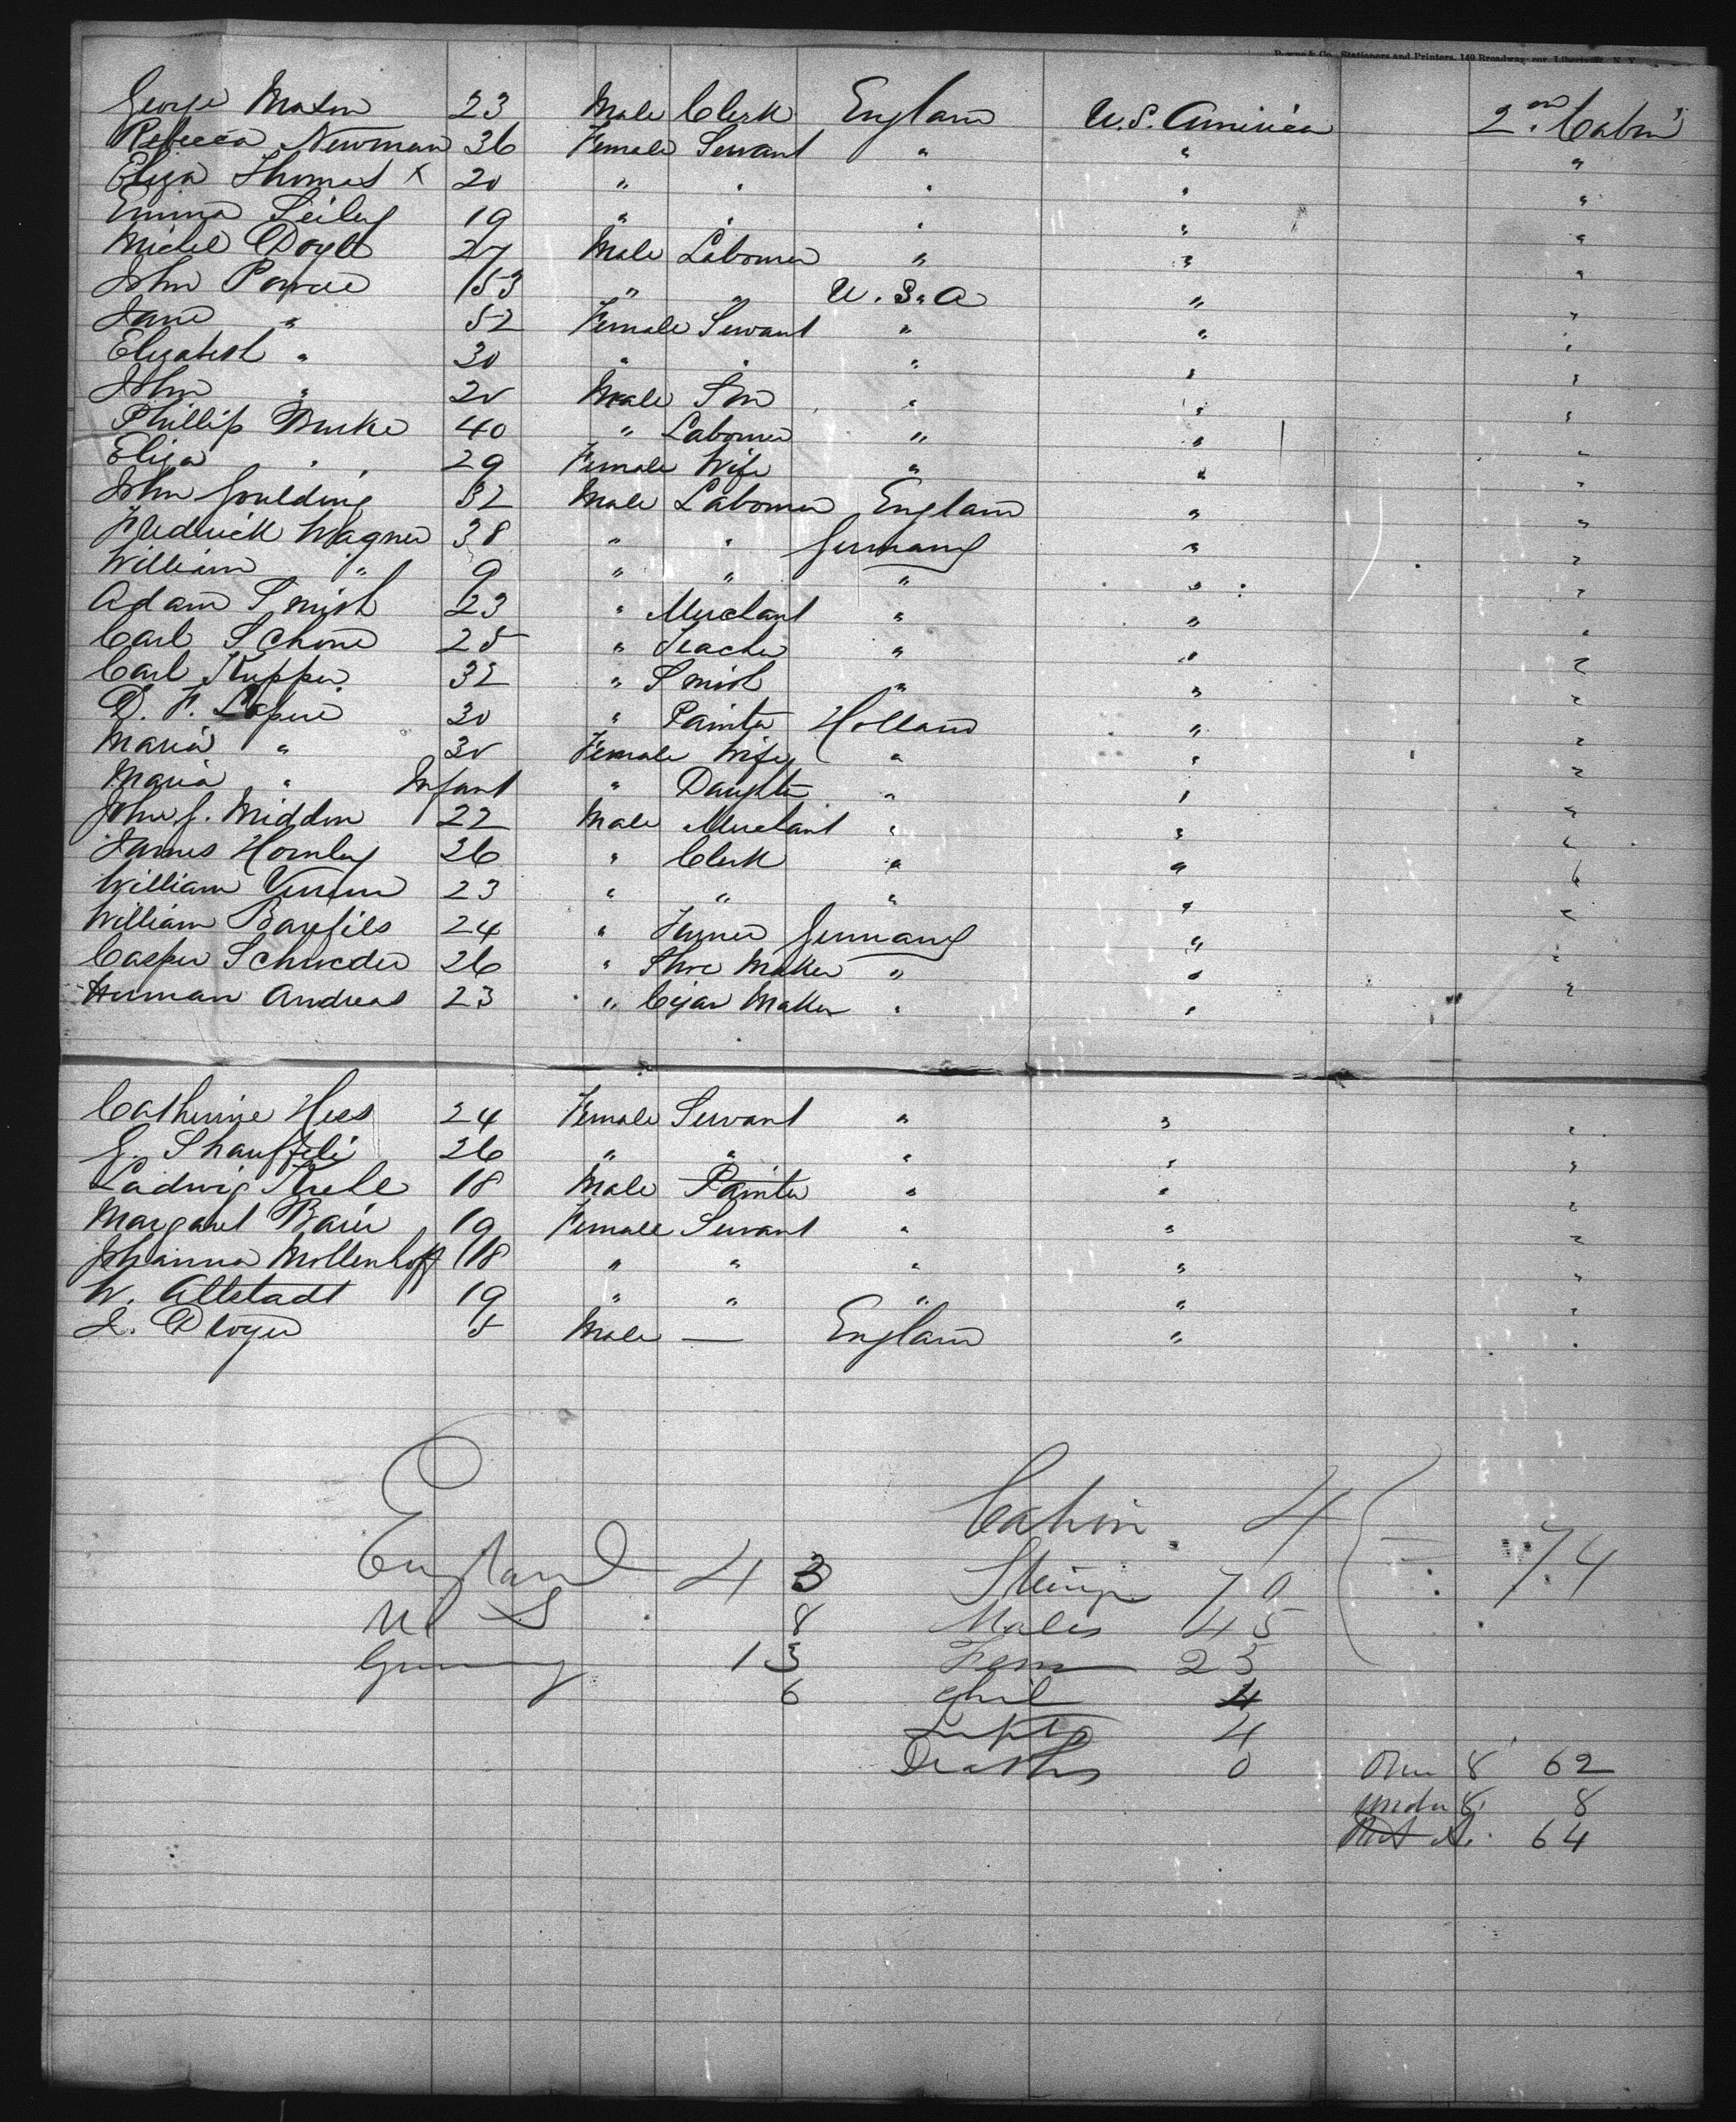 Bowne & Co., Stationers and Printers, 149 Broadway, cor. Liberty St., N. Y.
George Maton 23 Male Clerk England U.S. America 2nd Cabin
Rebecca Newman 36 Female Servant " " "
Eliza Thomas x 20 " " " " "
Emma Seiley 19 " " " " "
Michl Doyle 27 Male Labourer " " "
John Power 53 " " U.S.A " "
Jane " 52 Female Servant " " "
Elizabeth " 30 " " " " "
John " 20 Male Son " " "
Phillip Burke 40 " Labourer " " "
Eliza " 29 Female Wife " " "
John Goulding 32 Male Labourer England " "
Fredrick Wagner 38 " " Germany " "
William " 9 " " " " "
Adam Smith 23 " Merchant " " "
Carl Schone 25 " Teacher " " "
Carl Kupper 32 " Smith " " "
D. F. 30 " Painter Holland " "
Maria " 30 Female Wife " " "
Maria " Infant " Daughter " " "
John J. Middon 22 Male Merchant " " "
James Hornby 26 " Clerk " " "
William 23 " " " " "
William Barfils 24 " Germany " "
Casper Schroeder 26 " Shoe Maker " " "
Herman Andreas 23 " Cigar Maker " " "
Catherine Hess 24 Female Servant " " "
26 " " " " "
Ludwig 18 Male Painter " " "
Margaret Baier 19 Female Servant " " "
Johanna Mollenhoff 18 " " " " "
W. Altstadt 19 " " " " "
5 Male — England " "
Cabin 4
England 43 70 = 74
U S 8 Males 45
Germany 13 Fem 23
6 Chil 4
4
Deaths 0 Over 8 62
under 8 8
64